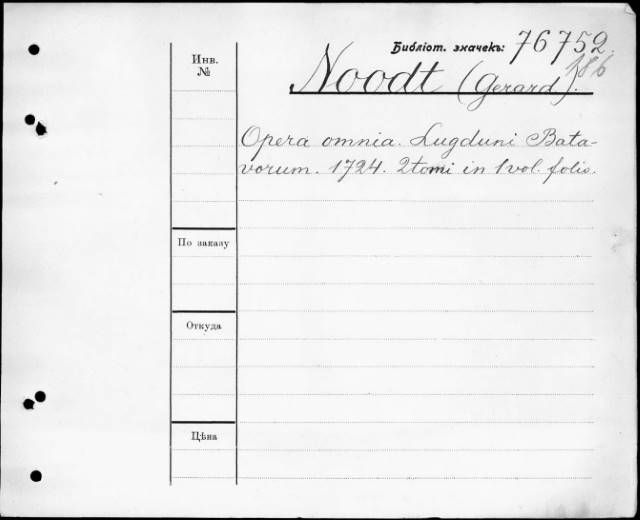 Библіот. значекъ: 76752.
186
Инв.
№
Noodt (Gerard).
Opera omnia. Lugduni Bata-
vorum. 1724. 2 tomi in 1 vol. folio.
По заказу
Откуда
Цѣна